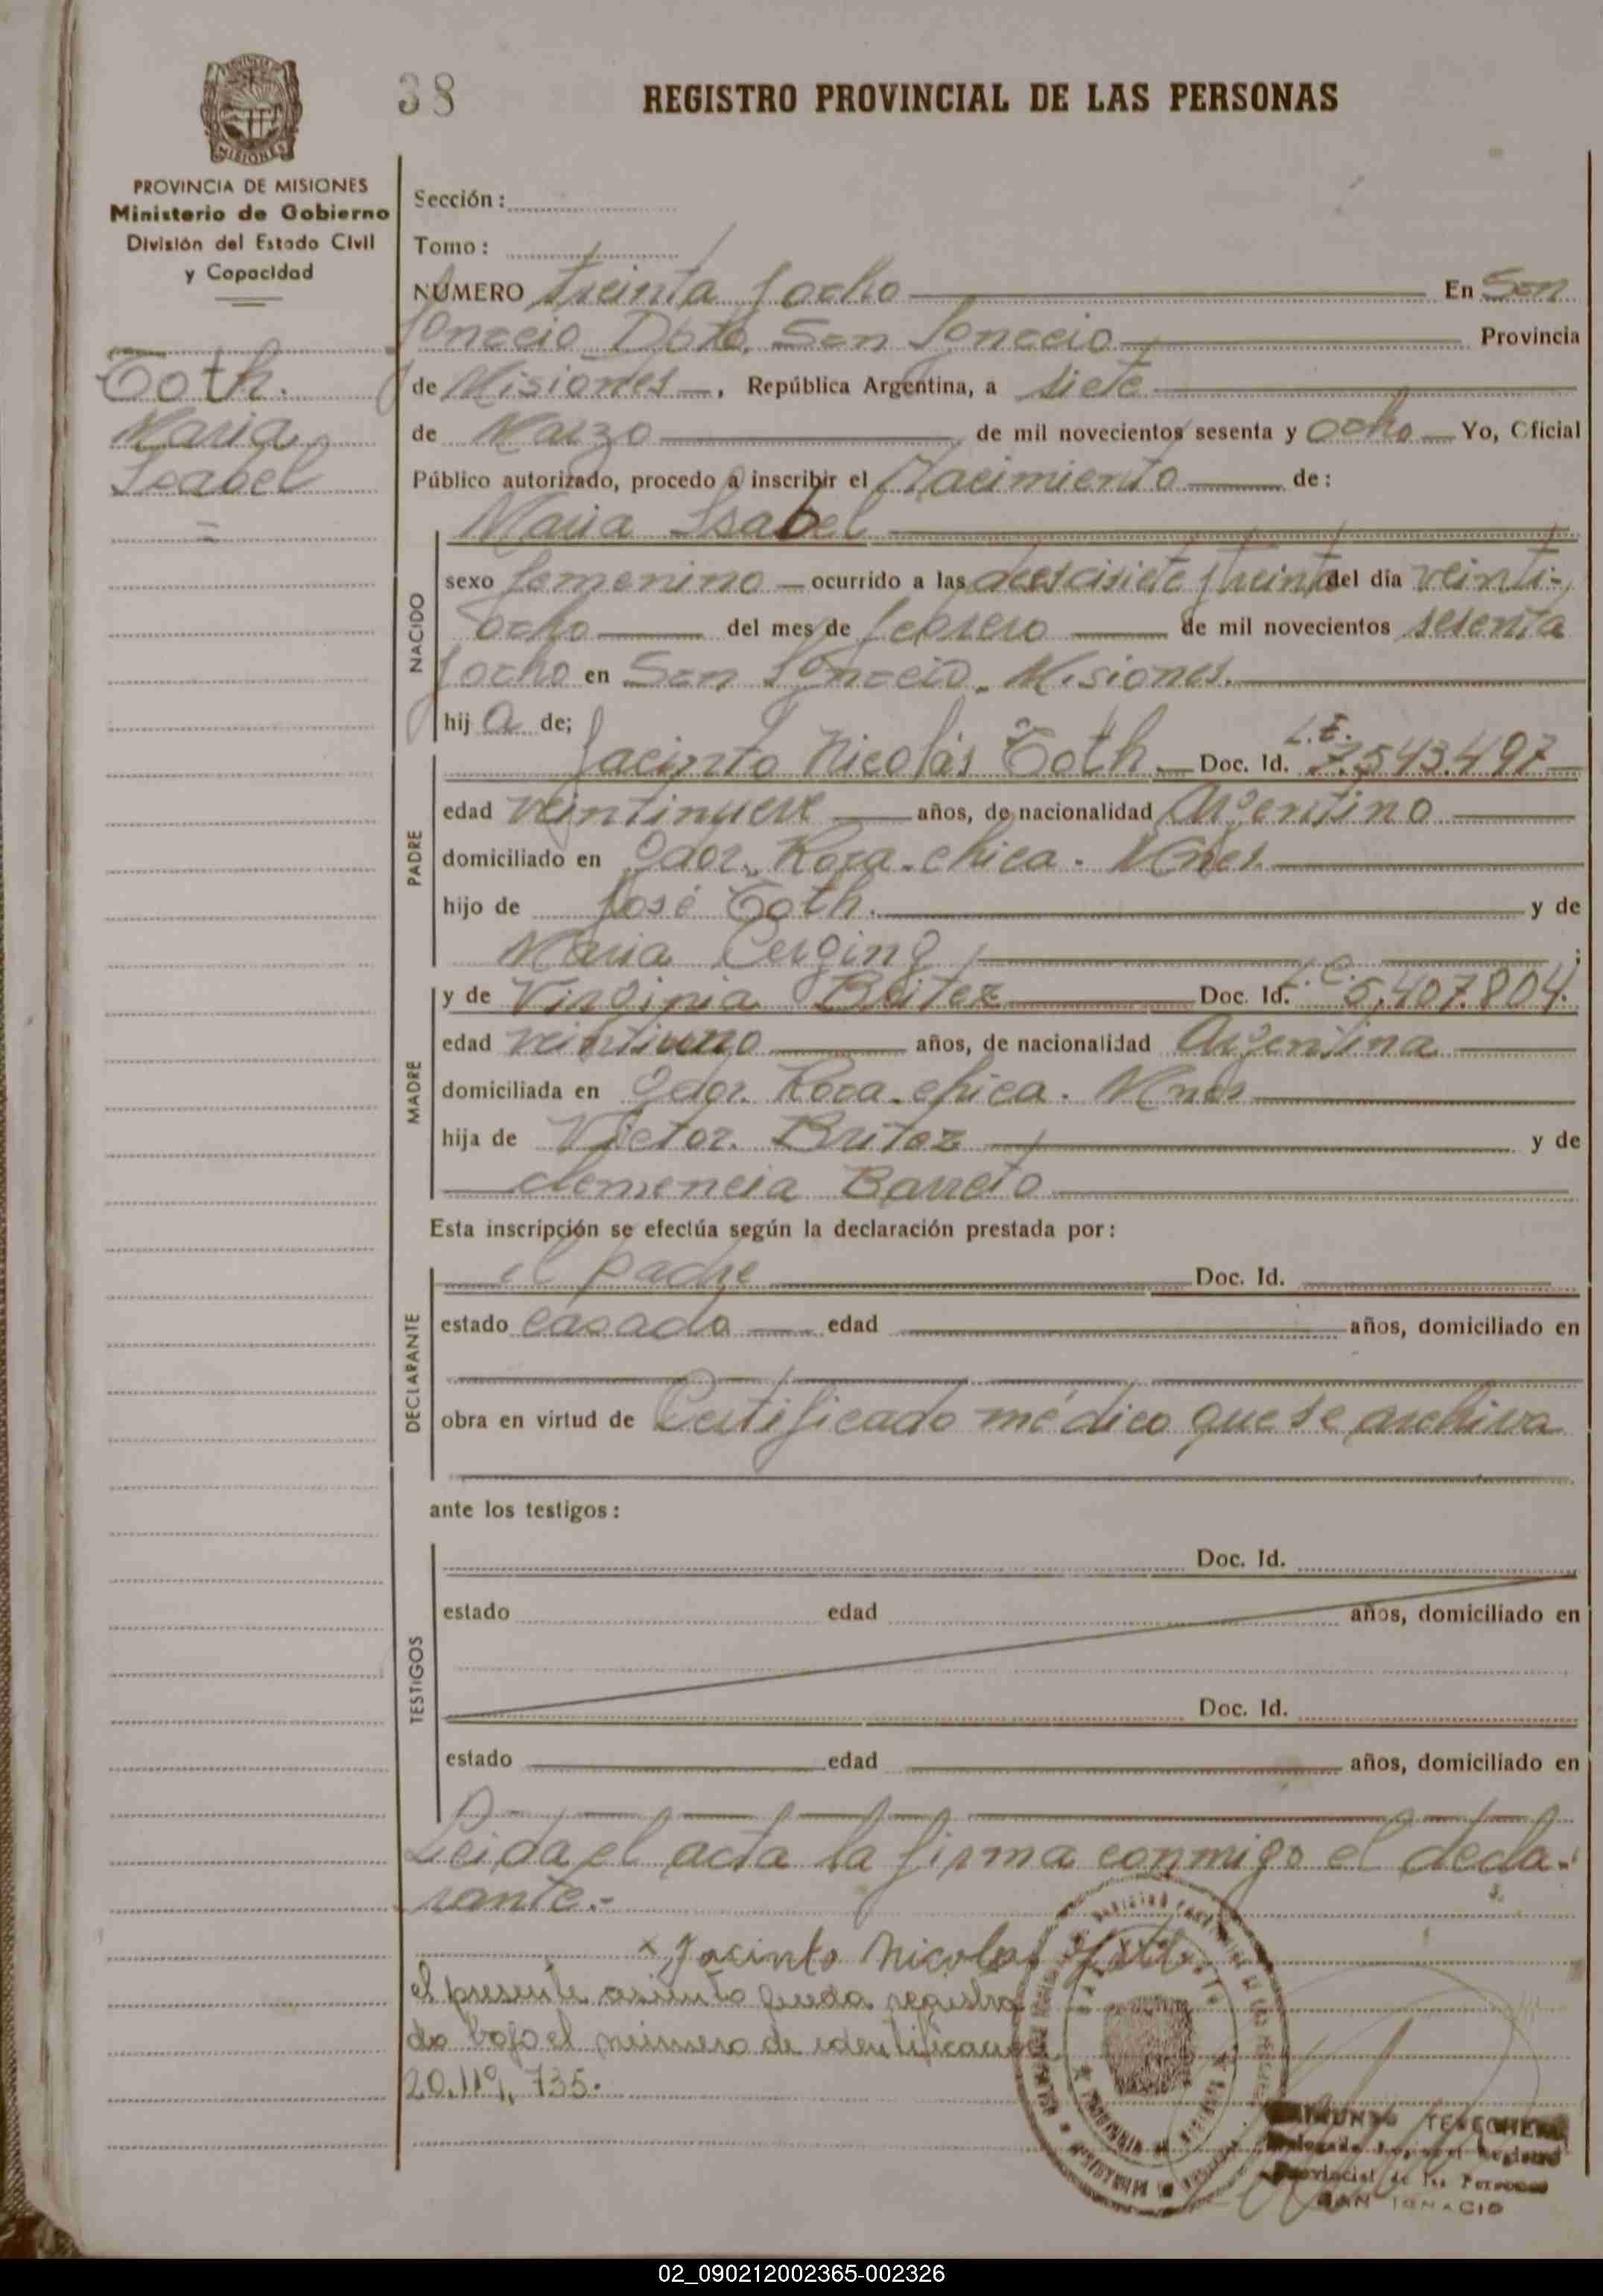 38
REGISTRO PROVINCIAL DE LAS PERSONAS
MISIONES
PROVINCIA DE MISIONES
Ministerio de Gobierno
División del Estado Civil
y Capacidad
Toth.
Maria
Isabel
Sección :
Tomo :
NÚMERO treinta y ocho En San
Ignacio Dpto. San Ignacio Provincia
de Misiones , República Argentina, a siete
de Marzo de mil novecientos sesenta y ocho Yo, Oficial
Público autorizado, procedo a inscribir el Nacimiento de :
Maria Isabel
NACIDO
sexo femenino ocurrido a las diescisiete y treinta del día veinti-
ocho del mes de febrero de mil novecientos sesenta
y ocho en San Ignacio. Misiones.
hij a de;
PADRE
L.E.
Jacinto Nicolás Toth Doc. Id. 7.543.497
edad veintinueve años, de nacionalidad Argentino
domiciliado en Gdor. Roca-chica. Mnes.
hijo de José Toth. y de
Maria ;
MADRE
L.C.
y de Virginia Britez Doc. Id. 5.407.804.
edad veintiuno años, de nacionalidad Argentina
domiciliada en Gdor. Roca-chica. Mnes
hija de Victor. Britez y de
clemencia Barreto
Esta inscripción se efectúa según la declaración prestada por :
DECLARANTE
el padre Doc. Id.
estado casado edad años, domiciliado en
obra en virtud de Certificado médico que se archiva
ante los testigos :
TESTIGOS
Doc. Id.
estado edad años, domiciliado en
Doc. Id.
estado edad años, domiciliado en
Leida el acta la firma conmigo el decla-
rante.-
x Jacinto Nicolas Toth
el presente asiento queda registra
do bajo el número de identificacion
20.119.735.
Provincial de las Personas
SAN IGNACIO
02_090212002365-002326